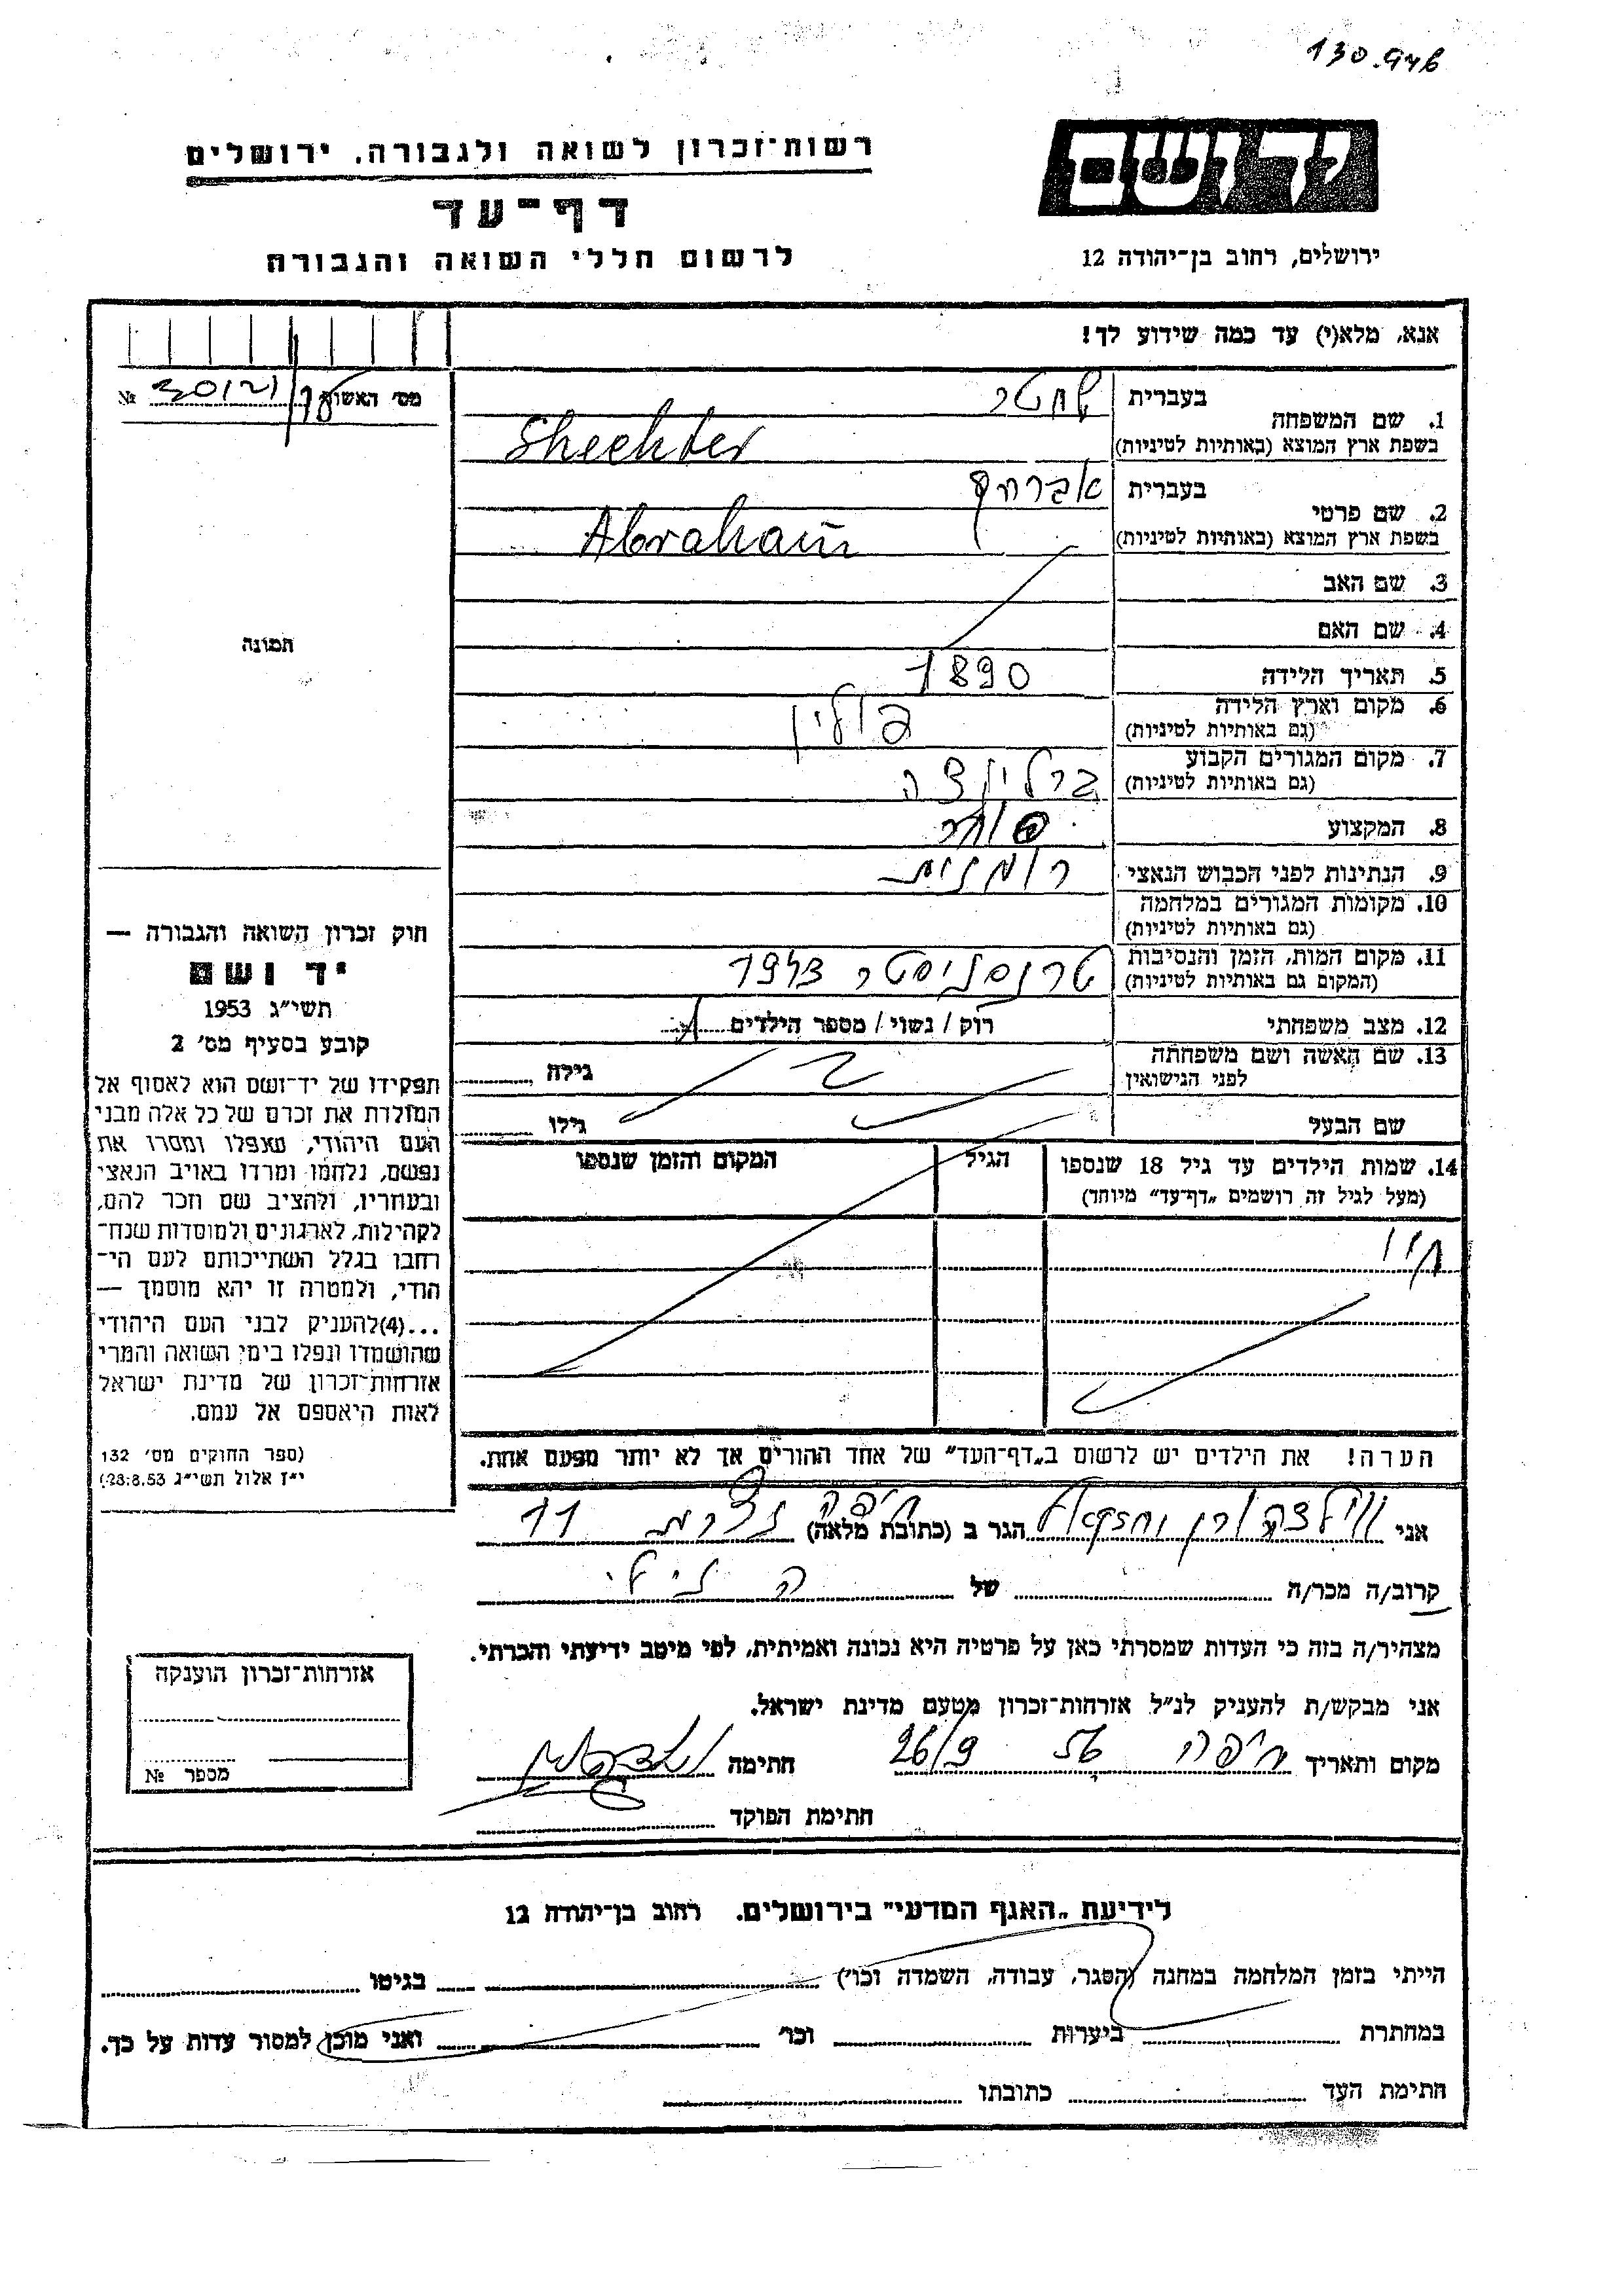 130.946
רשות־זכרון לשואה ולגבורה. ירושלים
יד ושם
דף־עד
לרשום חללי השואה והגבורה
ירושלים, רחוב בן־יהודה 12
אנא, מלא(י) עד כמה שידוע לך!
מס׳ האשור № 30121
1. שם המשפחה
בעברית שחטר
בשפת ארץ המוצא (באותיות לטיניות) Shechter
2. שם פרטי
בעברית אברהם
בשפת ארץ המוצא (באותיות לטיניות) Abraham
3. שם האב
4. שם האם
5. תאריך הלידה 1890
6. מקום וארץ הלידה פולין
(גם באותיות לטיניות)
7. מקום המגורים הקבוע ברלינצה
(גם באותיות לטיניות)
8. המקצוע סוחר
9. הנתינות לפני הכבוש הנאצי רומנית
10. מקומות המגורים במלחמה
(גם באותיות לטיניות)
11. מקום המות, הזמן והנסיבות טרנסניסטר 1943
(המקום גם באותיות לטיניות)
12. מצב משפחתי רווק / נשוי / מספר הילדים
13. שם האשה ושם משפחתה
לפני הנישואין
גילה
שם הבעל
גילו
14. שמות הילדים עד גיל 18 שנספו הגיל המקום והזמן שנספו
(מעל לגיל זה רושמים „דף־עד״ מיוחד)
הערה! את הילדים יש לרשום ב„דף־העד״ של אחד ההורים אך לא יותר מפעם אחת.
תמונה
חוק זכרון השואה והגבורה —
יד ושם
תשי״ג 1953
קובע בסעיף מס׳ 2
תפקידו של יד־ושם הוא לאסוף אל
המולדת את זכרם של כל אלה מבני
העם היהודי, שנפלו ומסרו את
נפשם, נלחמו ומרדו באויב הנאצי
ובעוזריו, ולהציב שם וזכר להם,
לקהילות, לארגונים ולמוסדות שנח־
רבו בגלל השתייכותם לעם הי־
הודי, ולמטרה זו יהא מוסמך —
...(4) להעניק לבני העם היהודי
שהושמדו ונפלו בימי השואה והמרי
אזרחות־זכרון של מדינת ישראל
לאות היאספם אל עמם.
(ספר החוקים מס׳ 132
י״ז אלול תשי״ג 28.8.53)
אני הגר ב (כתובת מלאה) חיפה 11
קרוב/ה מכר/ה של
מצהיר/ה בזה כי העדות שמסרתי כאן על פרטיה היא נכונה ואמיתית, לפי מיטב ידיעתי והכרתי.
אני מבקש/ת להעניק לנ״ל אזרחות־זכרון מטעם מדינת ישראל.
מקום ותאריך חיפה 26/9 56 חתימה
חתימת הפוקד
אזרחות־זכרון הוענקה
מספר №
לידיעת „האגף המדעי״ בירושלים. רחוב בן־יהודה 12
הייתי בזמן המלחמה במחנה (הסגר, עבודה, השמדה וכו׳) בגיטו
במחתרת ביערות וכו׳ ואני מוכן למסור עדות על כך.
חתימת העד כתובתו